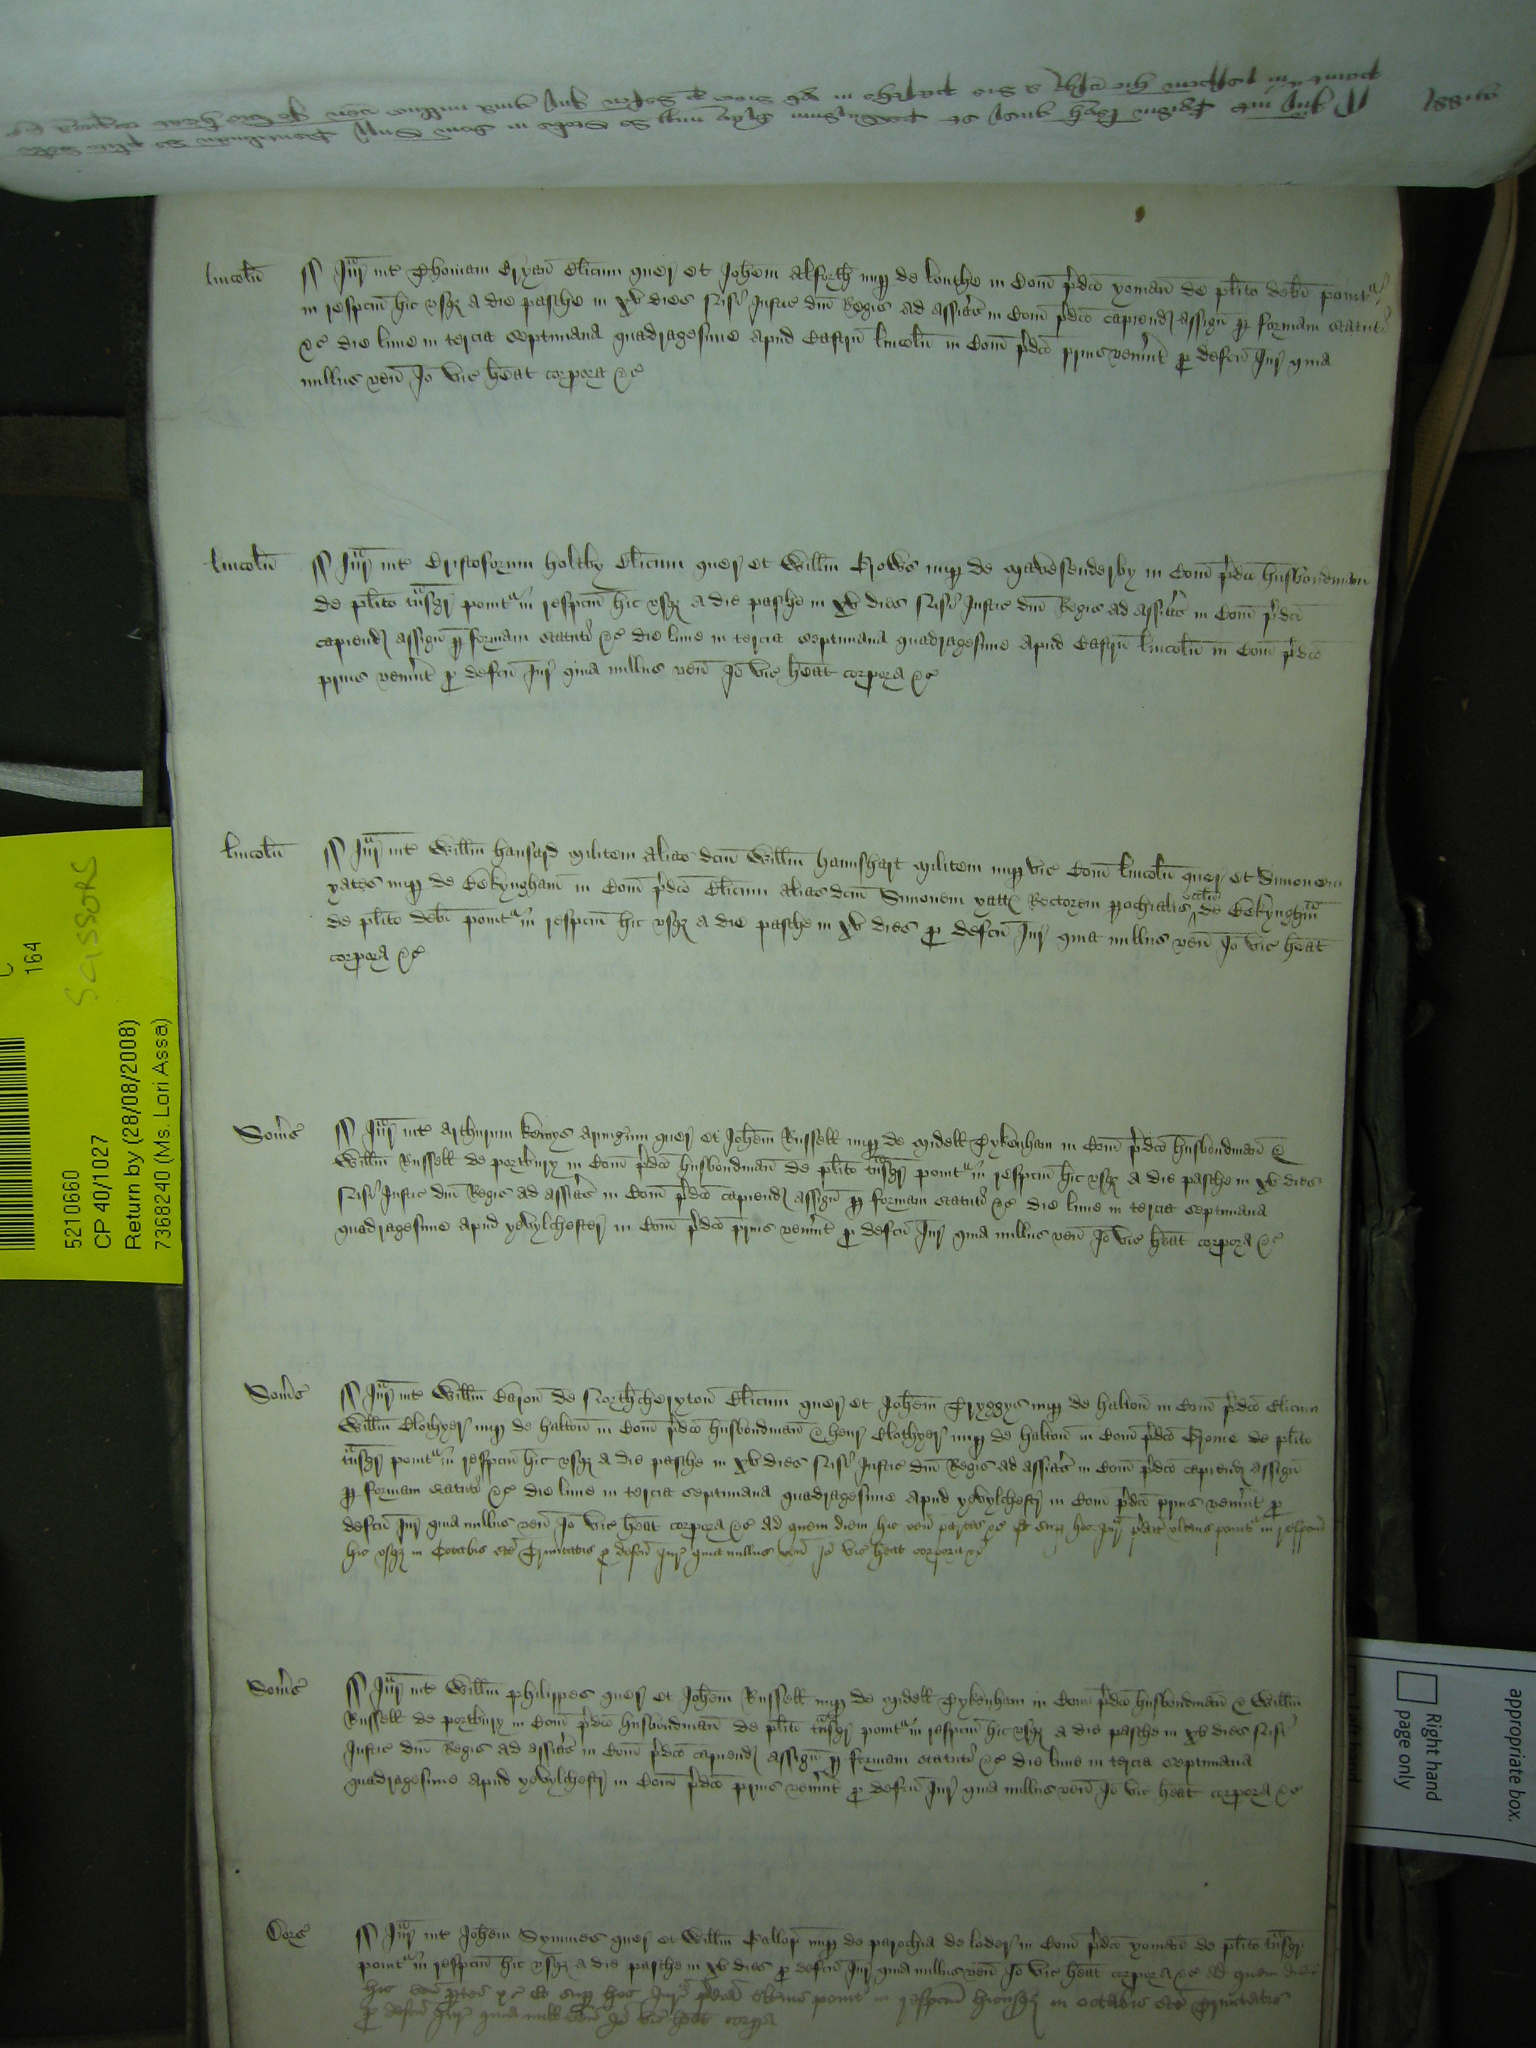 lincoln
Jur int Thomam Bryan Clicum quer et Johem Alforth nup de louthe in Com pdco yoman de plito debi ponit
in respcm hic usq a die pasche in xv dies Nisi Justic dni Regis ad assis in Com pdco capiend assign p formam statuti
&c die lune in tercia septimana quadragesime apud Castru lincoln in Com pdco prius venint p defcu Jur quia
nullus ven Jo vic heat corpora &c
lincoln
Jur int Cristoforum holtby Clicum quer et Willm nup de Mavesenderby in Com pdco husbondman
de plito tnsgr ponit in respcm hic usq a die pasche in xv dies Nisi Justic dni Regis ad assis in Com pdco
capiend assign p formam statuti &c die lune in tercia septimana quadragesime apud Castru lincoln in Com pdco
prius venint p defcu Jur quia nullus ven Jo vic heat corpora &c
lincoln
Jur int Willm hansard militem alias dcm Willm haunshart militem nup vic Com lincoln quer et Simonem
yates nup de Bekyngham in Com pdco Clicum alias dcm Simonem yatt Rectorem pochialis ecclie de Bekyngham
de plito debi ponit in respcm hic usq a die pasche in xv dies p defcu Jur quia nullus ven Jo vic heat
corpora &c
Soms
Jur int Arthurum kemys armigum quer et Johem Russell nup de Midell Tykenham in Com pdco husbondman &
Willm Russell de portbury in Com pdco husbondman de plito tnsgr ponit in respcm hic usq a die pasche in xv dies
Nisi Justic dni Regis ad assis in Com pdco capiend assign p formam statuti &c die lune in tercia septimana
quadragesime apud yevylchester in Com pdco prius venint p defcu Jur quia nullus ven Jo vic heat corpora &c
Soms
Jur int Willm Caron de Northcheryton Clicum quer et Johem Tryggys nup de halton in Com pdco Clicum
Willm Clothyer nup de halton in Com pdco husbondman & henr Clothyer nup de halton in Com pdco de plito
tnsgr ponit in respcm hic usq a die pasche in xv dies Nisi Justic dni Regis ad assis in Com pdco capiend assign
p formam statuti &c die lune in tercia septimana quadragesime apud yevylchestr in Com pdco prius venint p
defcu Jur quia nullus ven Jo vic heat corpora &c ad quem diem hic ven partes &c Et sup hoc Jur pdca ulterius ponit in respcm
hic usq in Octabis sce Trinitatis p defcu Jur quia nullus ven Jo vic heat corpora &c
Soms
Jur int Willm philippes quer et Johem Russell nup de Midell Tykenham in Com pdco husbondman & Willm
Russell de portbury in Com pdco husbondman de plito tnsgr ponit in respcm hic usq a die pasche in xv dies Nisi
Justic dni Regis ad assis in Com pdco capiend assign p formam statuti &c die lune in tercia septimana
quadragesime apud yevylchestr in Com pdco prius venint p defcu Jur quia nullus ven Jo vic heat corpora &c
Dors
Jur int Johem Symmes quer et Willm nup de parochia de loder in Com pdco yoman de plito tnsgr
ponit in respcm hic usq a die pasche in xv dies p defcu Jur quia nullus ven Jo vic heat corpora &c ad quem diem
hic ven ptes &c Et sup hoc Jur pdca ulterius ponit in respcm hic usq in octabis sce Trinitatis
p defcu Jur quia null ven Jo vic heat corpa
164
SCISSORS
5210660
CP 40/1027
Return by (28/08/2008)
7368240 (Ms. Lori Assa)
appropriate box.
Right hand
page only